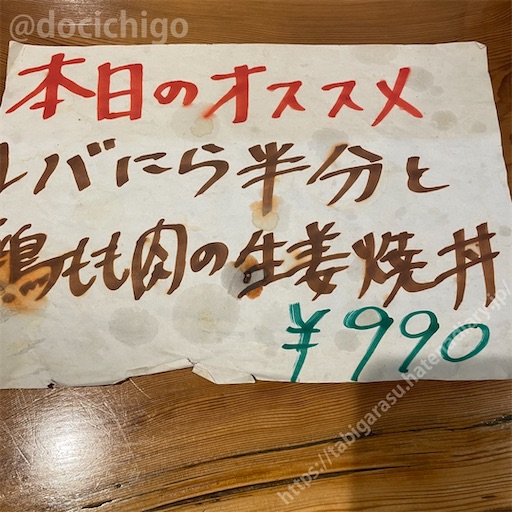 @docichigo
本日のオススメ
レバにら半分と
鶏もも肉の生姜焼丼
¥990
https://tabigarasu.hatenadiary.jp/